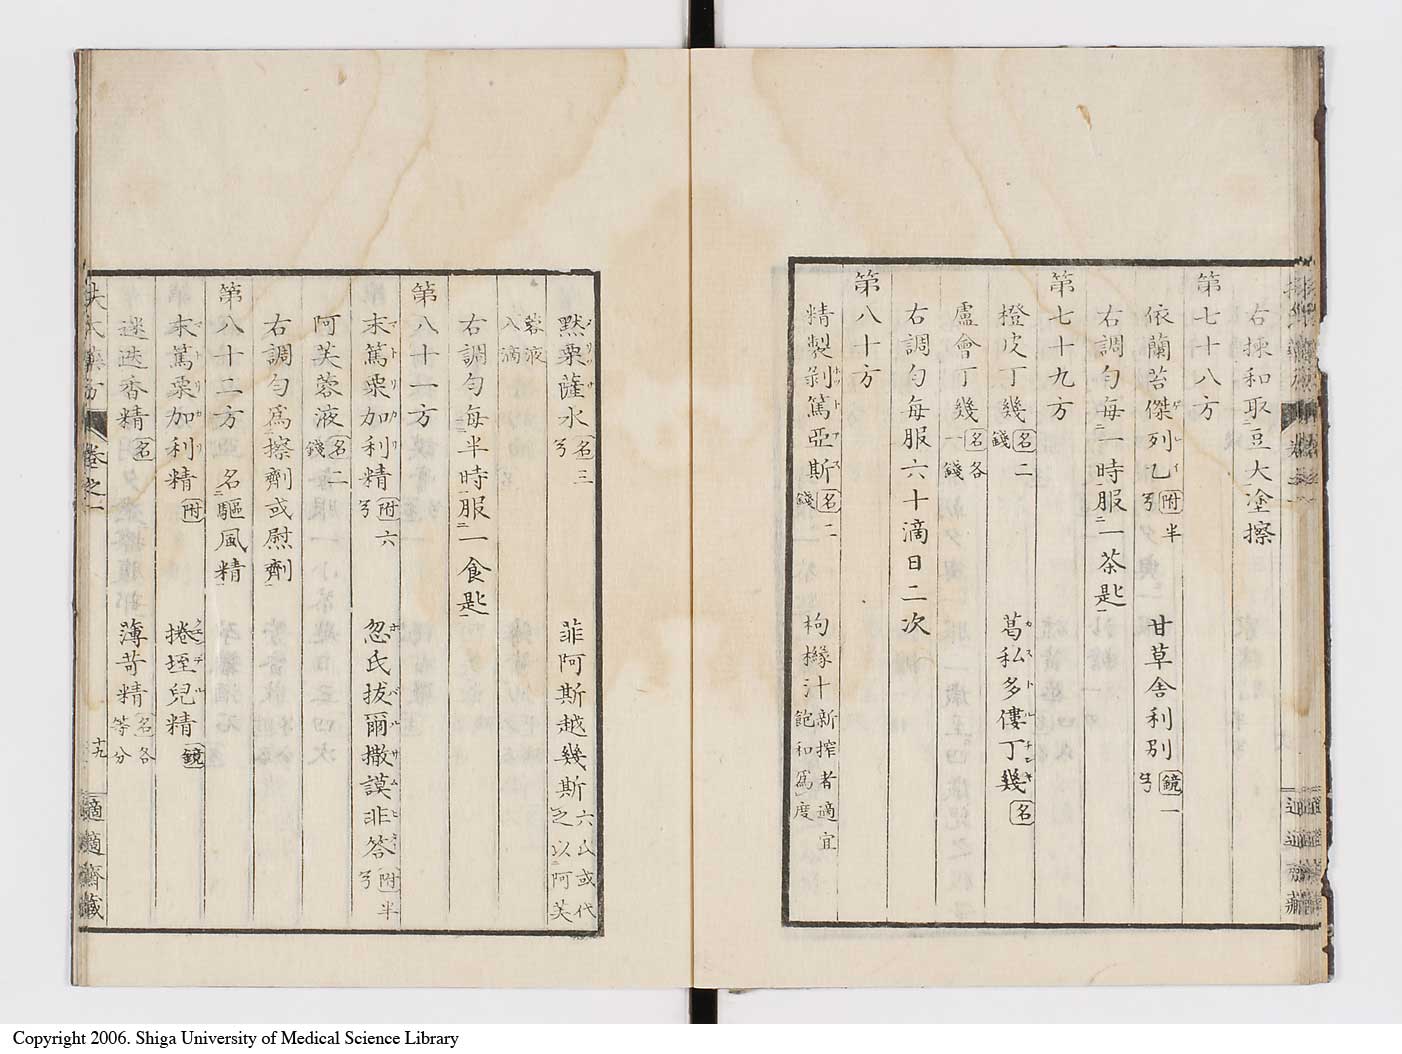 右揀和取豆大塗擦
第七十八方
依蘭苔傑列乙附半弓 甘草舎利別鏡一弓
右調勻毎一時服一茶匙
第七十九方
橙皮丁幾名二錢 葛私多僂丁幾名
盧會丁幾名各一錢
右調勻毎服六十滴日二次
第八十方
精製剝篤亞斯名二錢 枸櫞汁新搾者適宜飽和爲度
黙栗薩水名三弓 菲阿斯越幾斯六厶或代之以阿芙
蓉液八滴
右調勻毎半時服一食匙
第八十一方
末篤栗加利精附六弓 忽氏拔爾撒謨非答附半弓
阿芙蓉液名二錢
右調勻爲擦劑或慰劑
第八十二方 名驅風精
末篤栗加利精附 捲垤兒精鏡
迷迭香精名 薄苛精名各等分
卷之一
十九
適適齋藏
Copyright 2006. Shiga University of Medical Science Library